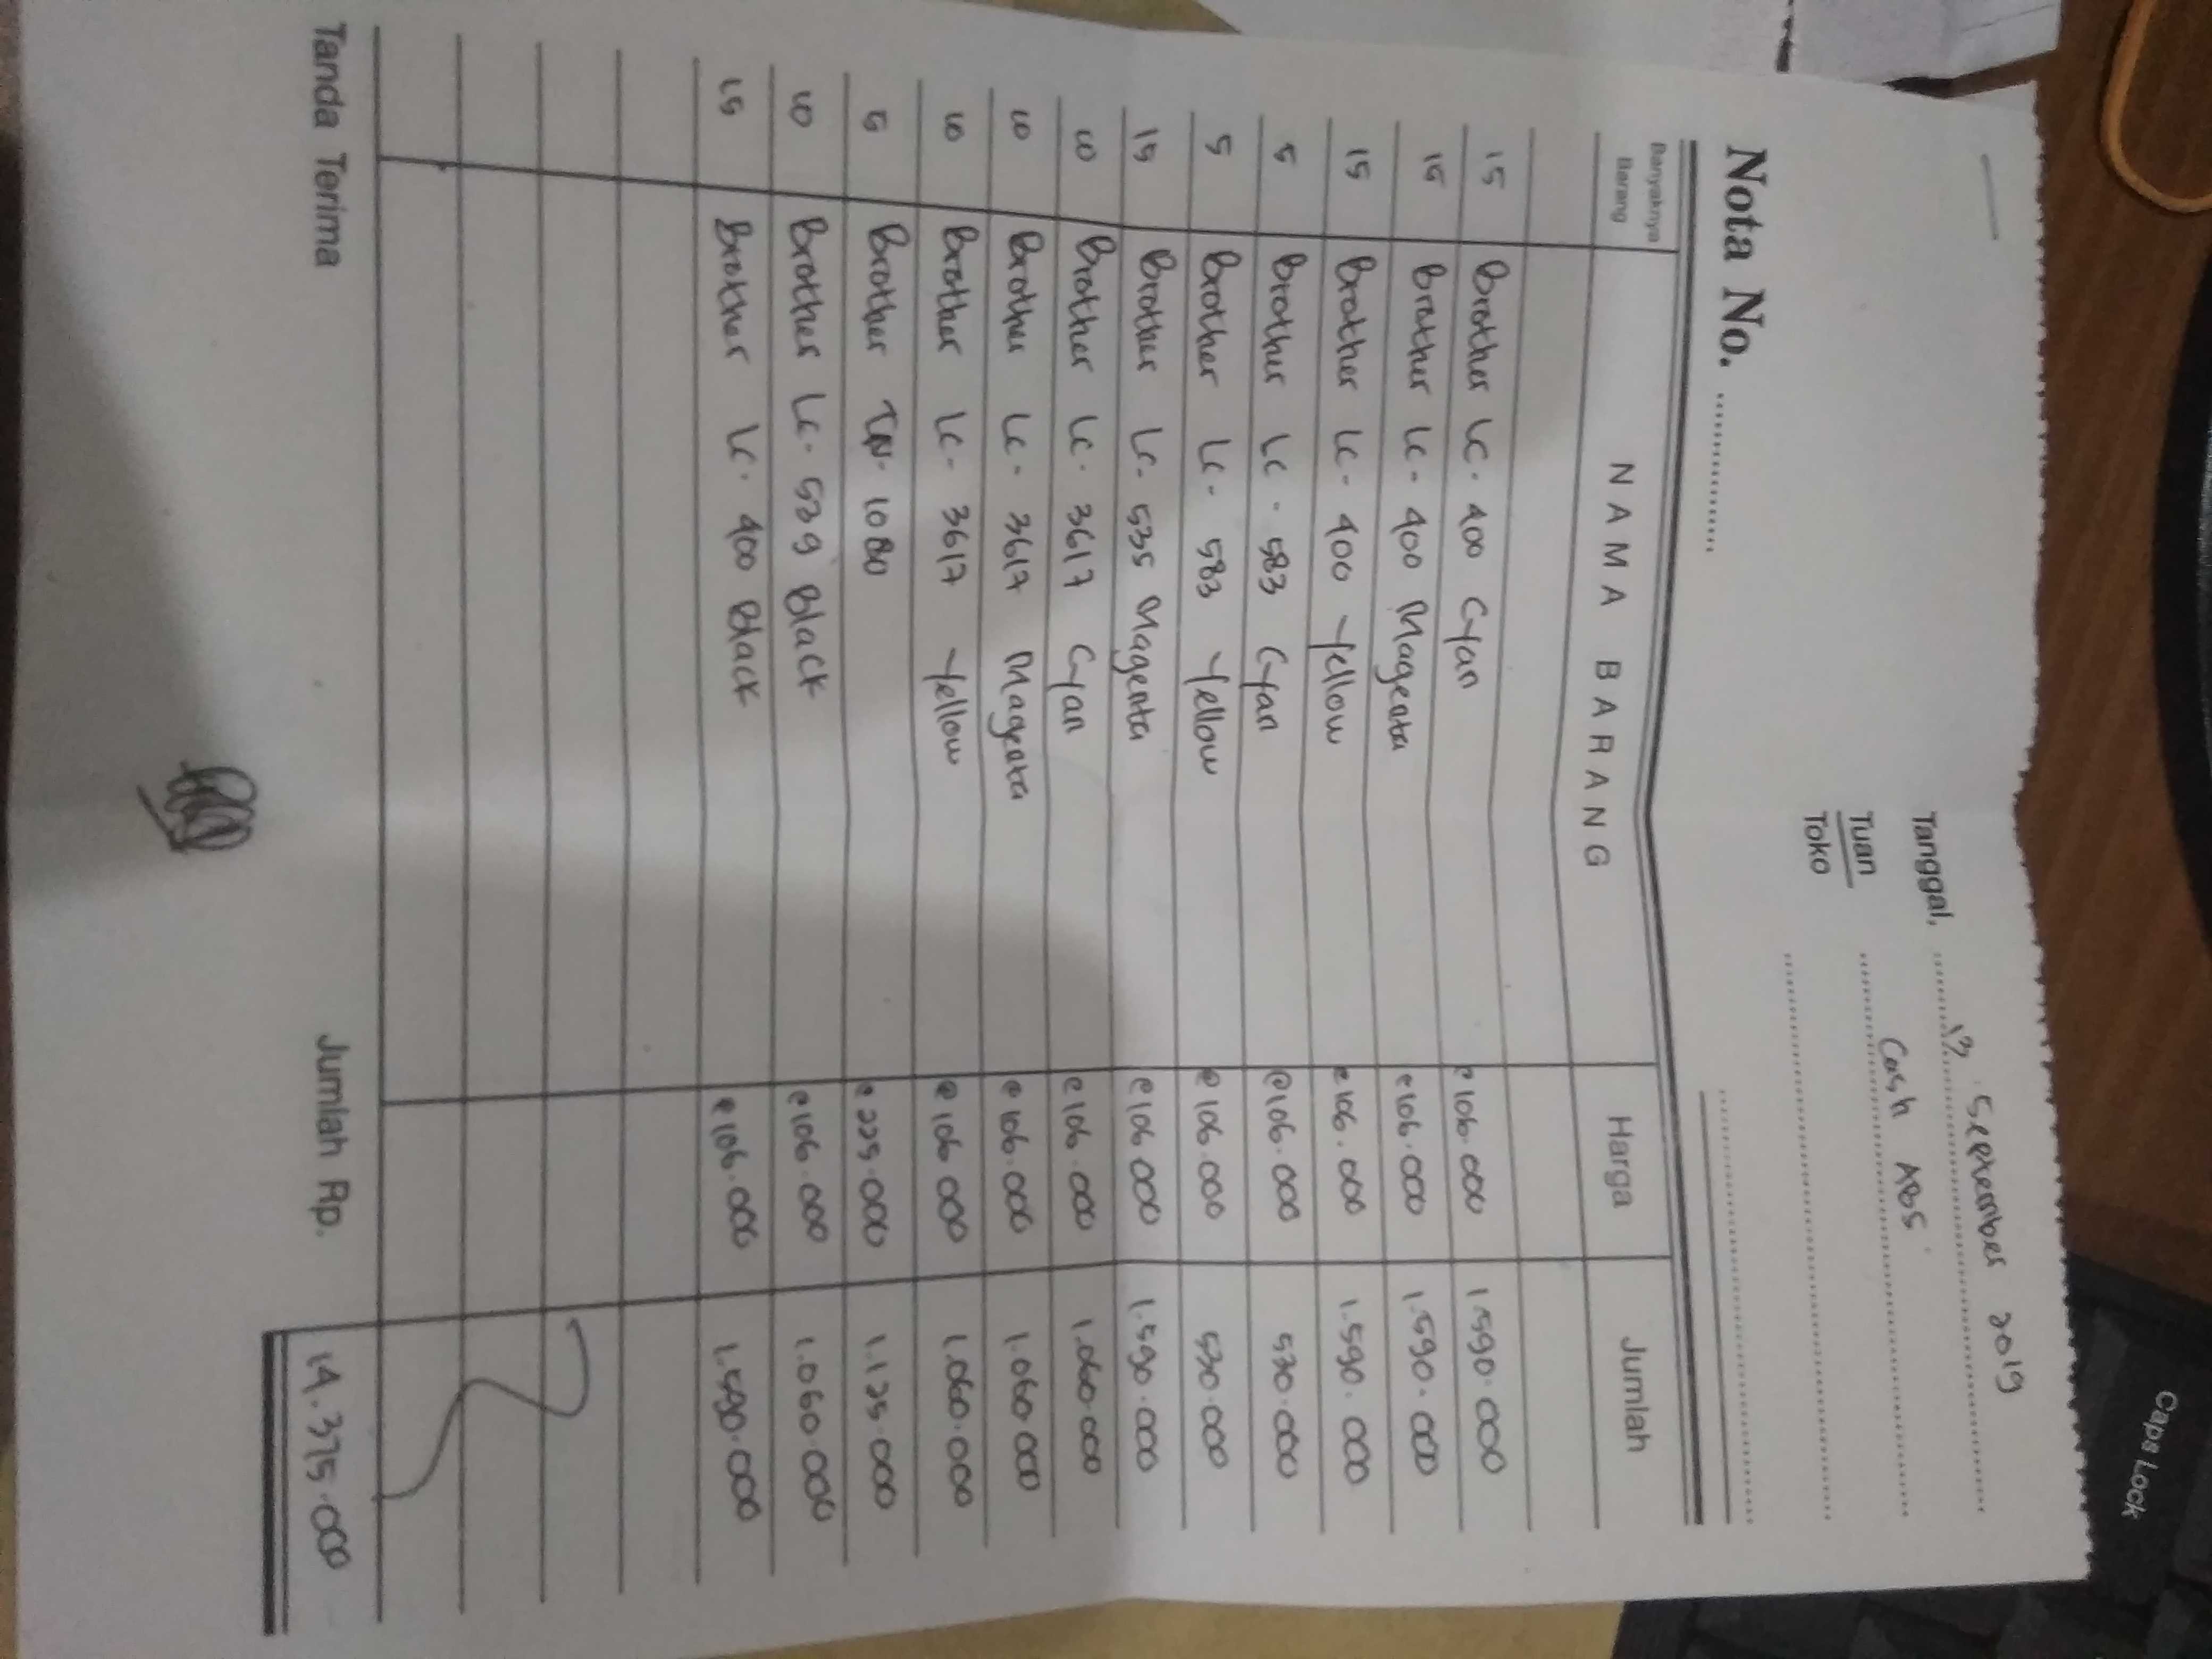 Tanggal, 13 September 2019
Tuan Cash ABS
Toko
Nota No. ............
Banyaknya Barang NAMA BARANG Harga Jumlah
15 Brother LC- 400 Cyan @106.000 1.590.000
15 Brother LC- 400 Magenta @106.000 1.590.000
15 Brother LC- 400 Yellow @106.000 1.590.000
5 Brother LC- 583 Cyan @106.000 530.000
5 Brother LC- 583 Yellow @106.000 530.000
15 Brother LC- 535 Magenta @106.000 1.590.000
10 Brother LC- 3617 Cyan @106.000 1.060.000
10 Brother LC- 3617 Magenta @106.000 1.060.000
10 Brother LC- 3617 Yellow @106.000 1.060.000
5 Brother TN- 1080 @225.000 1.125.000
10 Brother LC- 529 Black @106.000 1.060.000
15 Brother LC- 400 Black @106.000 1.590.000
Tanda Terima Jumlah Rp. 14.375.000
Caps Lock